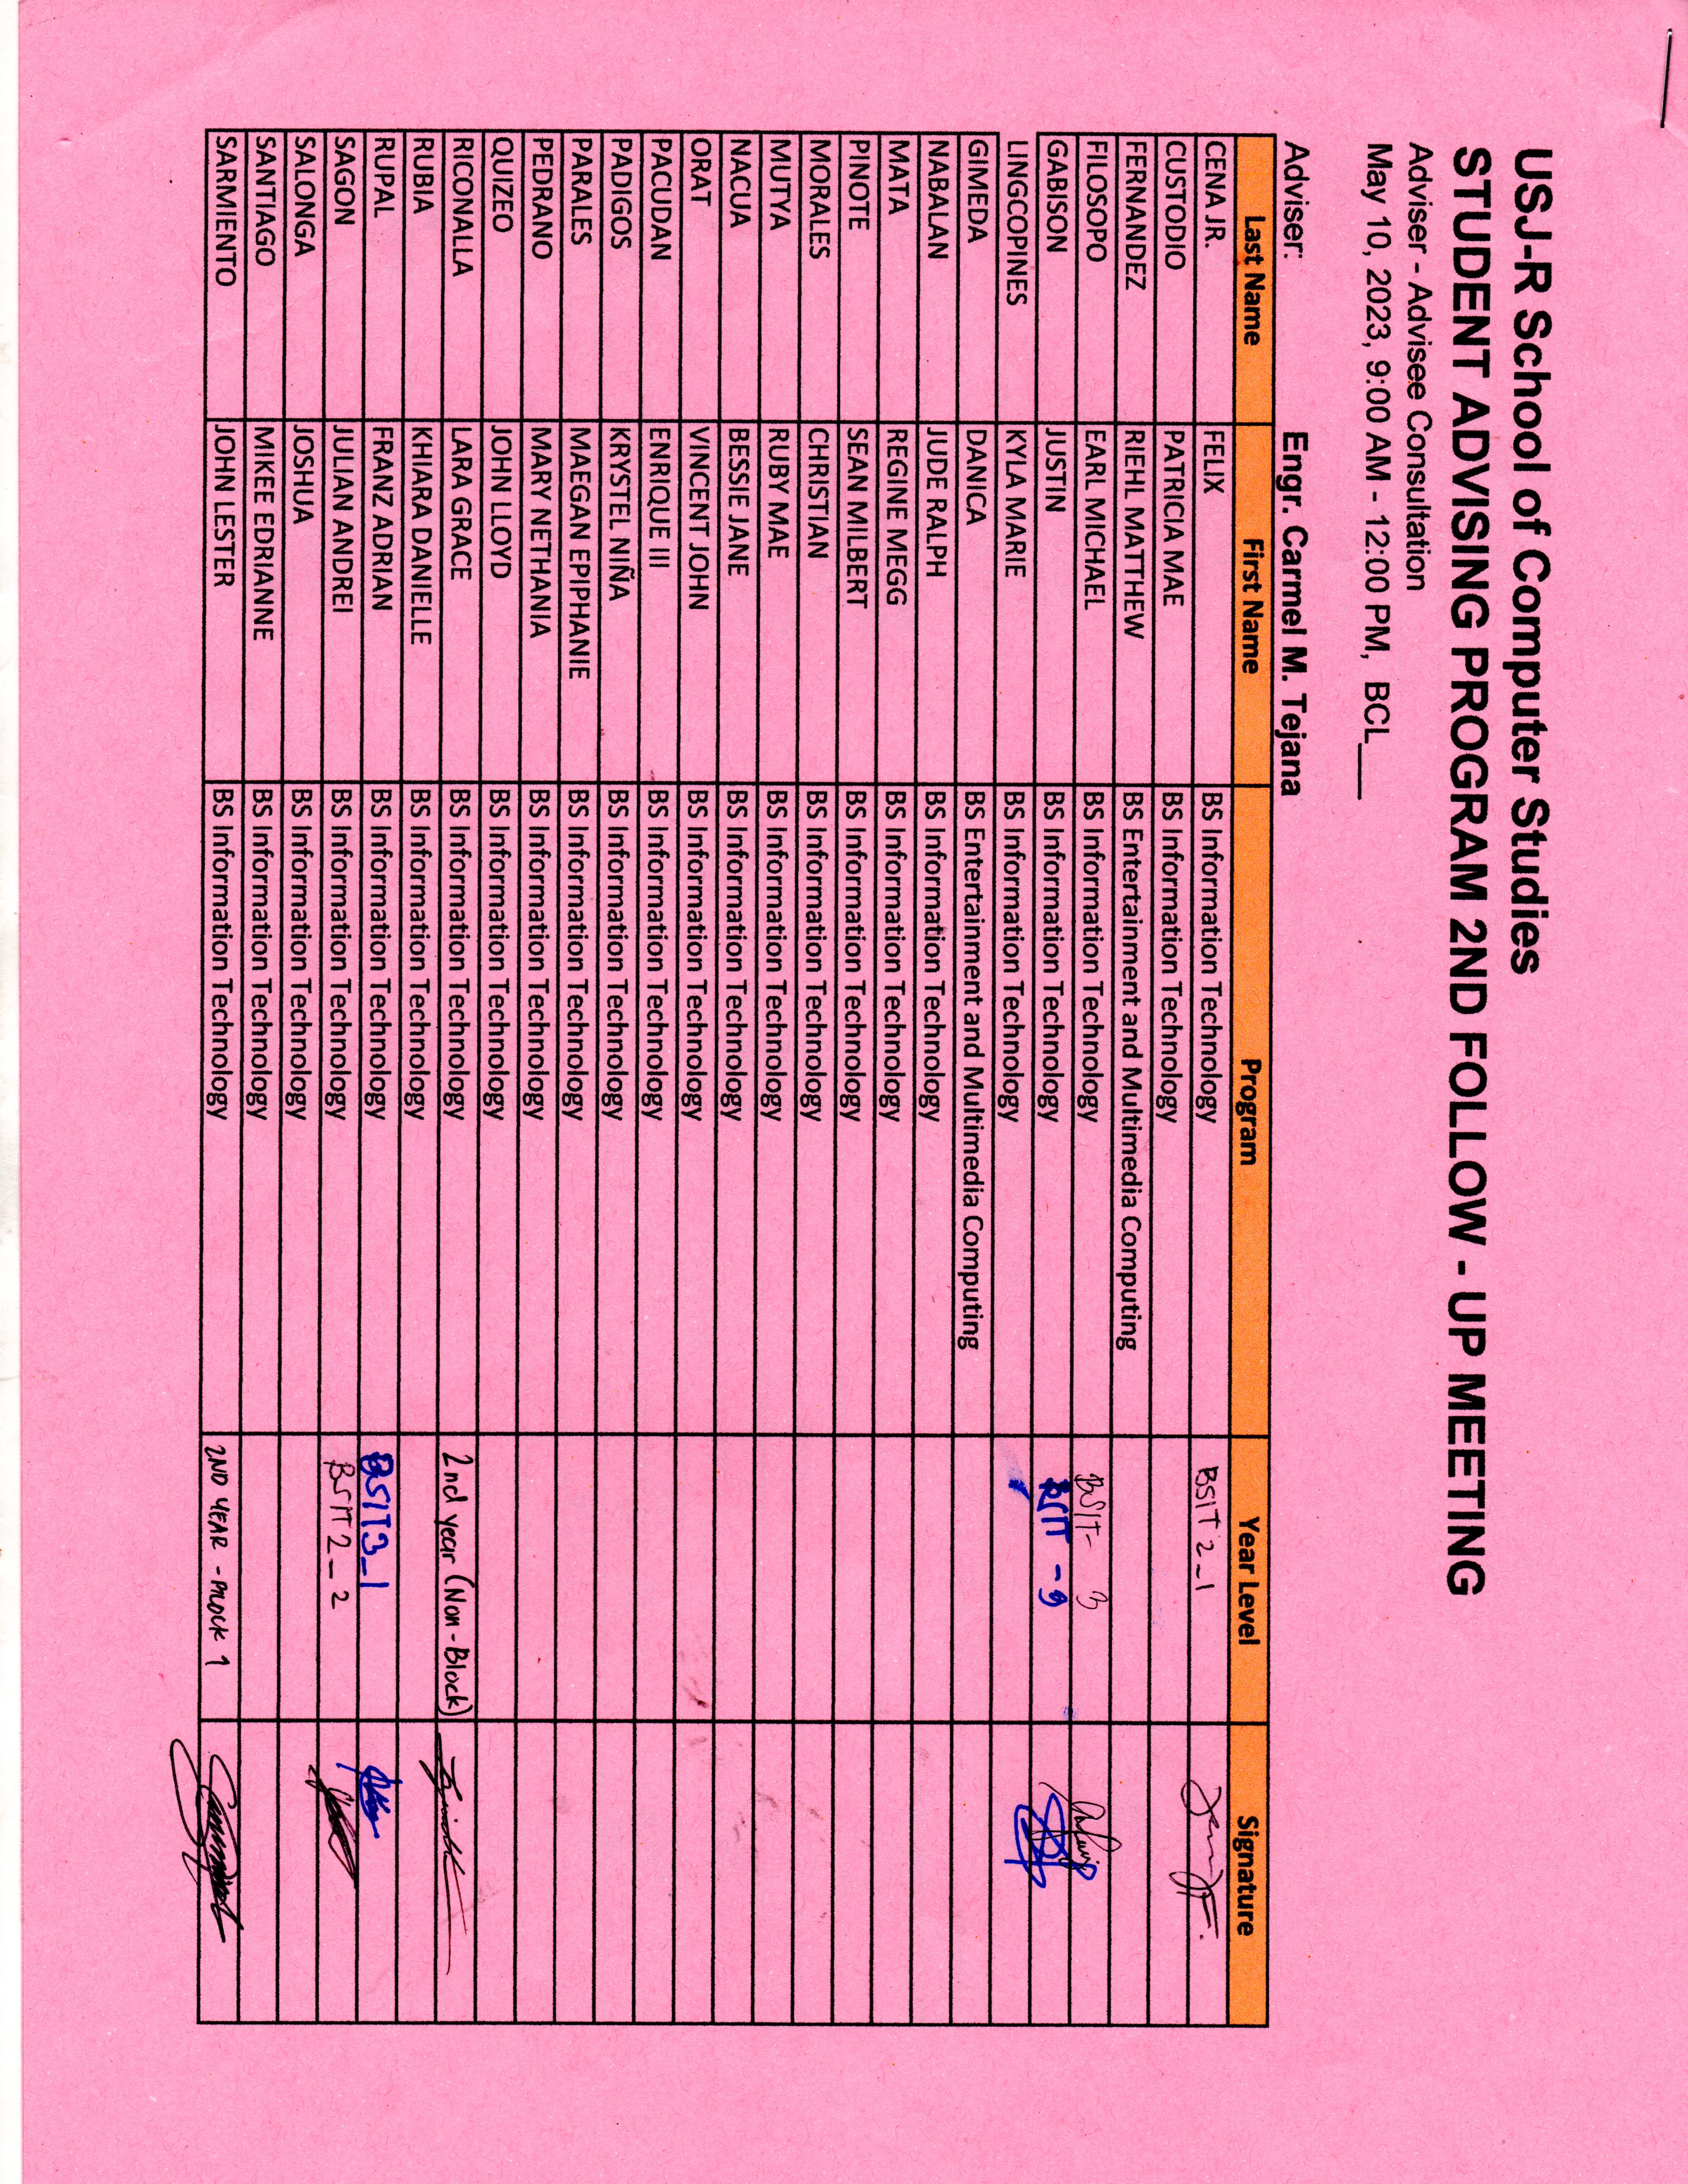 USJ-R School of Computer Studies
STUDENT ADVISING PROGRAM 2ND FOLLOW - UP MEETING
Adviser - Advisee Consultation
May 10, 2023, 9:00 AM - 12:00 PM, BCL___
Adviser: Engr. Carmel M. Tejana
Last Name First Name Program Year Level Signature
CENA JR. FELIX BS Information Technology BSIT 2_1
CUSTODIO PATRICIA MAE BS Information Technology
FERNANDEZ RIEHL MATTHEW BS Entertainment and Multimedia Computing
FILOSOPO EARL MICHAEL BS Information Technology BSIT- 3
GABISON JUSTIN BS Information Technology BSIT -3
LINGCOPINES KYLA MARIE BS Information Technology
GIMEDA DANICA BS Entertainment and Multimedia Computing
NABALAN JUDE RALPH BS Information Technology
MATA REGINE MEGG BS Information Technology
PINOTE SEAN MILBERT BS Information Technology
MORALES CHRISTIAN BS Information Technology
MUTYA RUBY MAE BS Information Technology
NACUA BESSIE JANE BS Information Technology
ORAT VINCENT JOHN BS Information Technology
PACUDAN ENRIQUE III BS Information Technology
PADIGOS KRYSTEL NIÑA BS Information Technology
PARALES MAEGAN EPIPHANIE BS Information Technology
PEDRANO MARY NETHANIA BS Information Technology
QUIZEO JOHN LLOYD BS Information Technology
RICONALLA LARA GRACE BS Information Technology 2nd year (Non-Block)
RUBIA KHIARA DANIELLE BS Information Technology
RUPAL FRANZ ADRIAN BS Information Technology BSIT3_1
SAGON JULIAN ANDREI BS Information Technology BSIT 2_2
SALONGA JOSHUA BS Information Technology
SANTIAGO MIKEE EDRIANNE BS Information Technology
SARMIENTO JOHN LESTER BS Information Technology 2ND YEAR - BLOCK 1